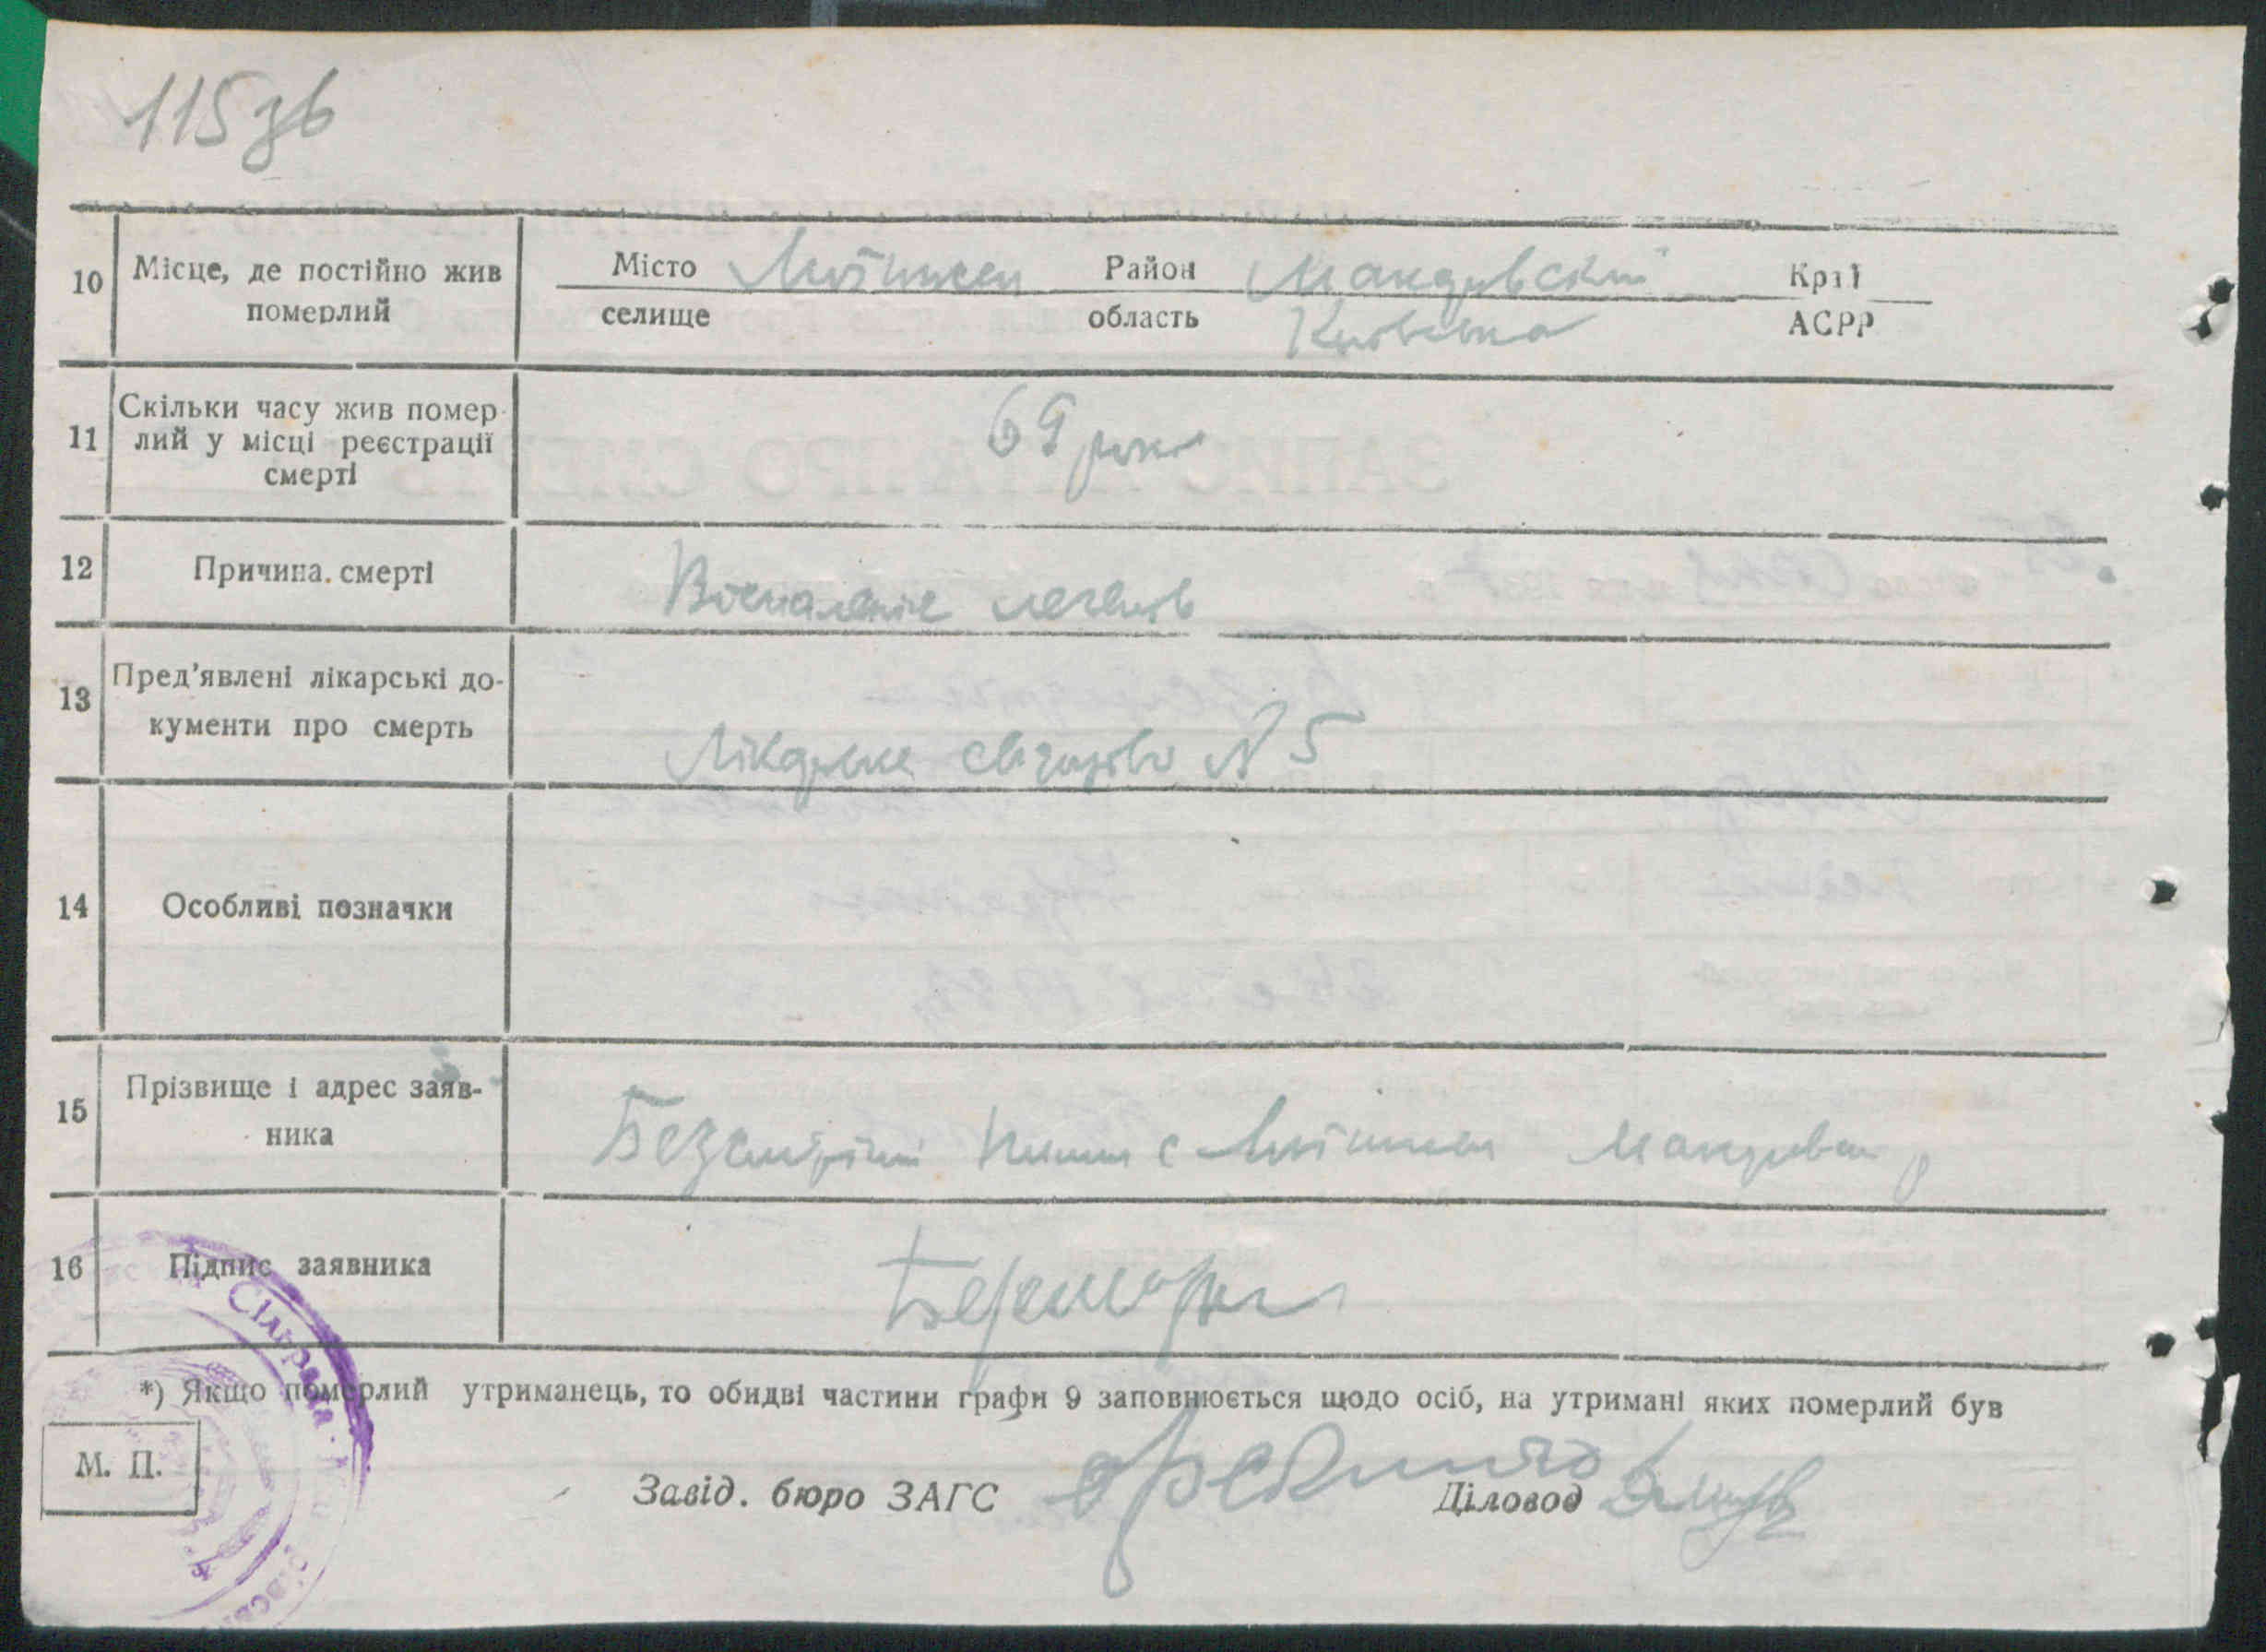 115зв
10 Місце, де постійно жив померлий
Місто Район Макарівський Край
селище область Київська АСРР
11 Скільки часу жив помер-
лий у місці реєстрації
смерті
69 років
12 Причина смерті
Воспаление легенів
13 Пред'явлені лікарські до-
кументи про смерть
Лікарське свідоцтво N 5
14 Особливі позначки
15 Прізвище і адрес заяв-
ника
16 Підпис заявника
Сільрада
*) Якщо померлий утриманець, то обидві частини графи 9 заповнюється щодо осіб, на утримані яких померлий був
М. П.
Завід. бюро ЗАГС Діловод